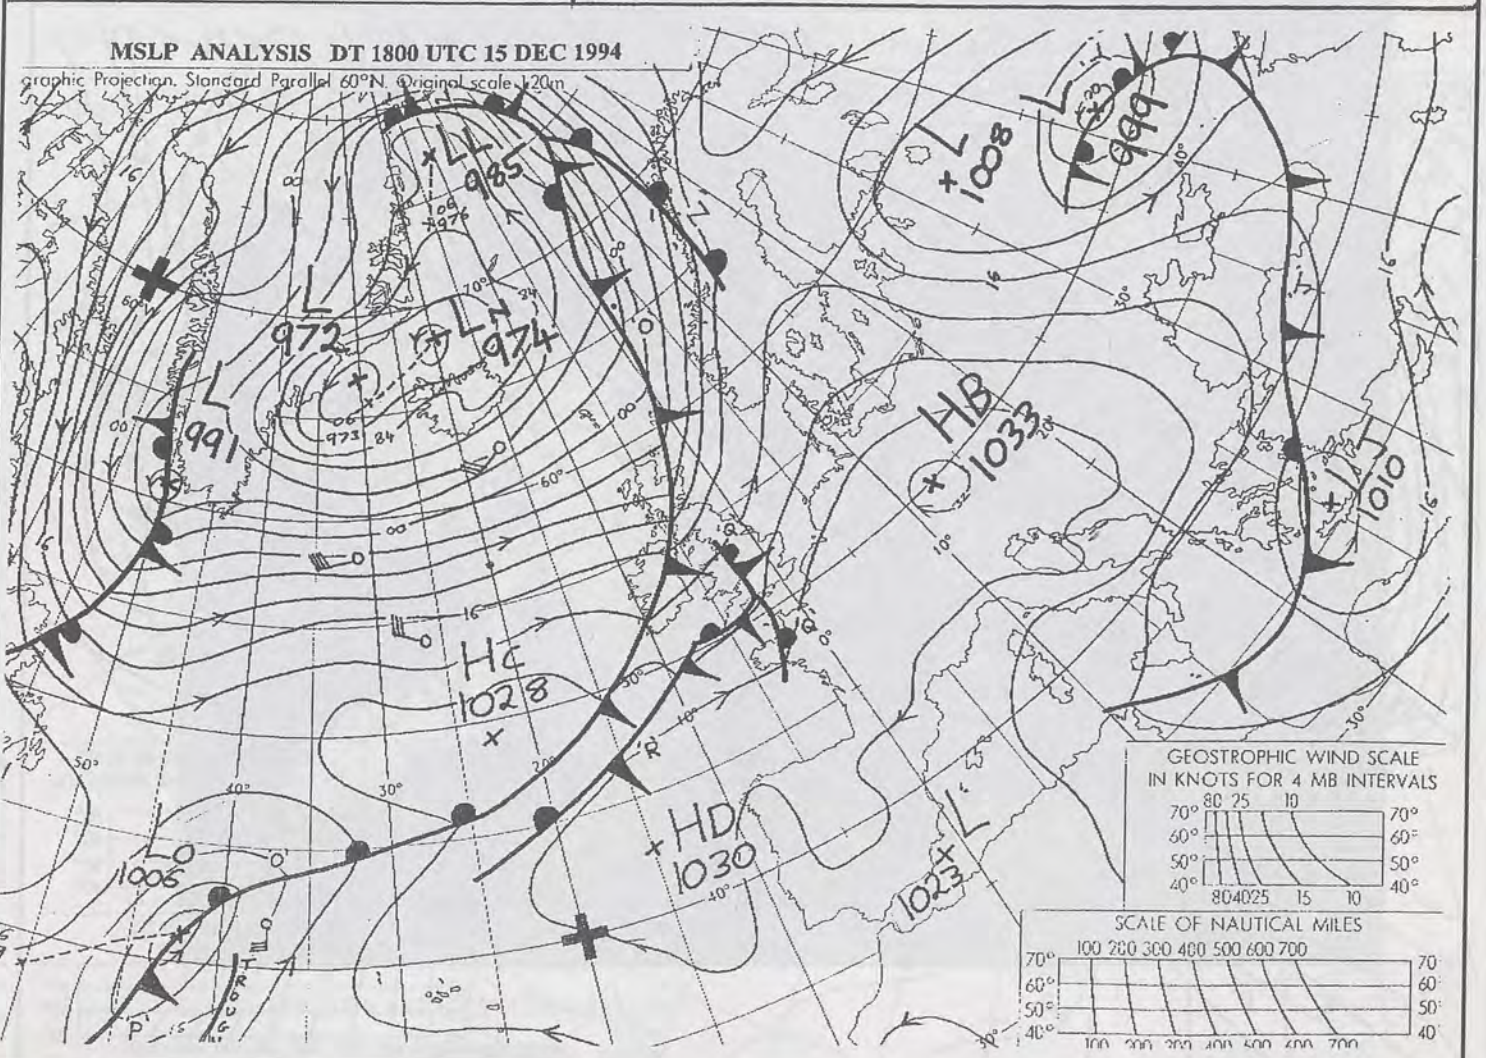 MSLP ANALYSIS DT 1800 UTC 15 DEC 1994
graphic Projection. Standard Parallel 60°N. Original scale 1:20m
L
1008
L
999
L L
985
16
00
06
976
L
972
L N
974
70°
84
60°
L
991
00
06
973
84
60°
00
16
HB
1033
20°
10°
40°
30°
16
L
1010
16
16
Hc
1028
'Q'
'Q'
0°
50°
10°
'R'
20°
30°
40°
50°
30°
HD
1030
40°
L
1023
LO
1006
O'
TROUG
'P'
GEOSTROPHIC WIND SCALE
IN KNOTS FOR 4 MB INTERVALS
80 25 10
70° 70°
60° 60°
50° 50°
40° 40°
80 40 25 15 10
SCALE OF NAUTICAL MILES
100 200 300 400 500 600 700
70° 70°
60° 60°
50° 50°
40° 40
100 200 300 400 500 600 700